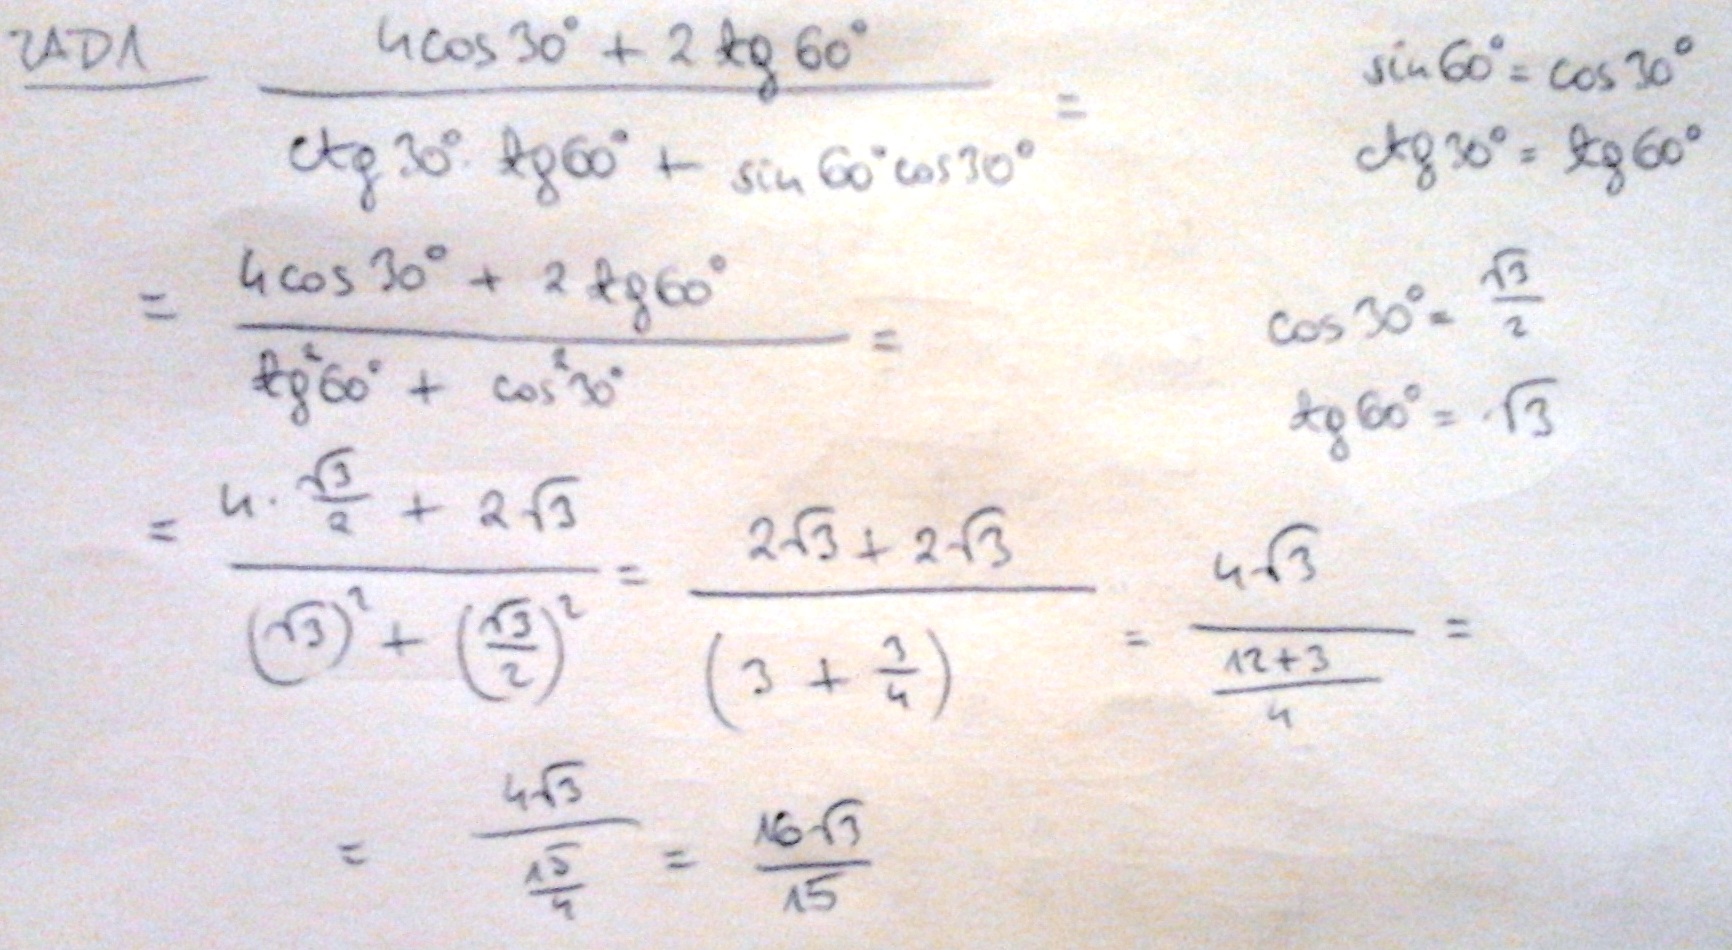 ZAD1
(4cos30° + 2tg60°) / (ctg30° · tg60° + sin60°cos30°) =
sin60° = cos30°
ctg30° = tg60°
= (4cos30° + 2tg60°) / (tg²60° + cos²30°) =
cos30° = √3/2
tg60° = √3
= (4 · √3/2 + 2√3) / ((√3)² + (√3/2)²) = (2√3 + 2√3) / (3 + 3/4) = 4√3 / ((12+3)/4) =
= 4√3 / (15/4) = 16√3 / 15